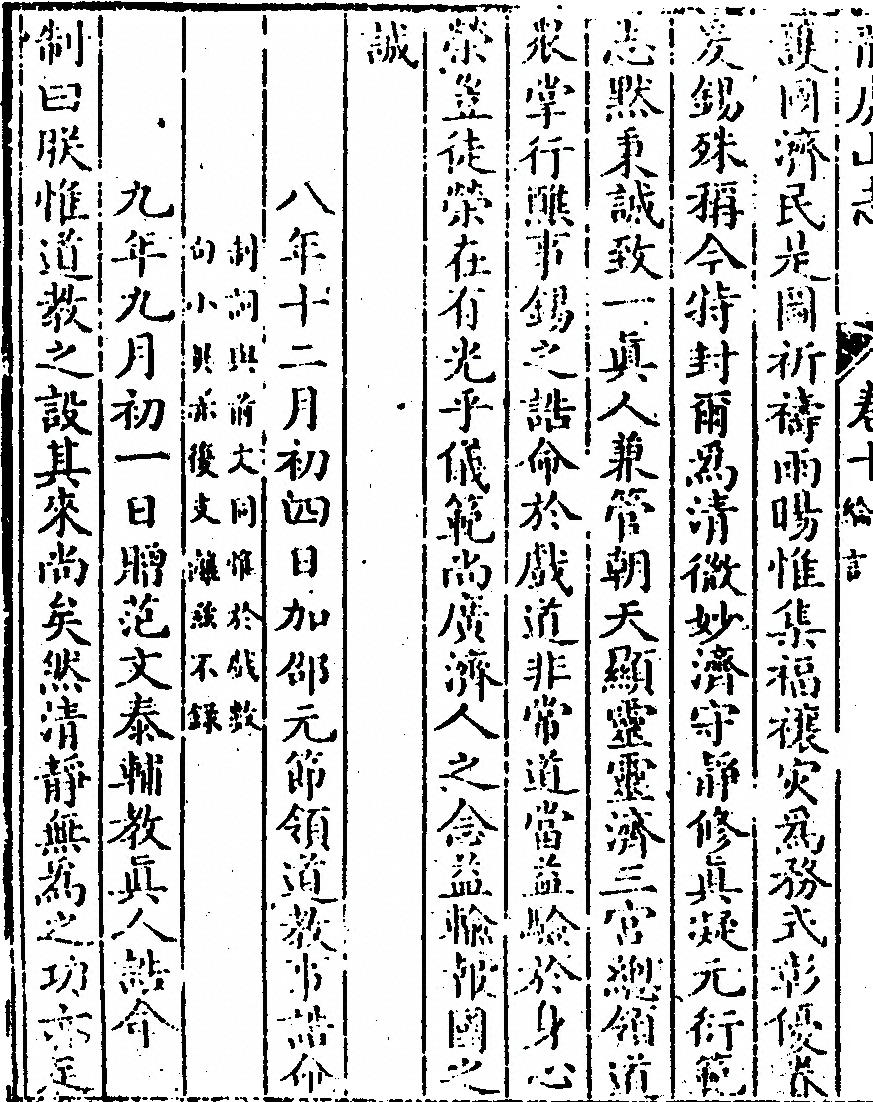 龍虎山志 卷十 綸言
護國濟民是圖祈禱雨暘惟集福禳灾爲務式彰優眷
爰錫殊稱今特封爾爲清微妙濟守靜修真凝元衍範
志默秉誠致一真人兼管朝天顯靈靈濟三宮總領道
衆掌行醮事錫之誥命於戲道非常道當益驗於身心
榮豈徒榮在有光乎儀範尚廣濟人之念益輸報國之
誠
八年十二月初四日加邵元節領道教事誥命
制詞與前文同惟於戲數
句小異亦復支離茲不錄
九年九月初一日贈范文泰輔教真人誥命
制曰朕惟道教之設其來尚矣然清靜無爲之功亦足